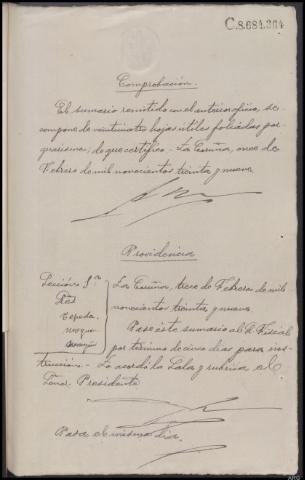 C.8.684.364
Comprobación.
El sumario remitido con el anterior oficio, se
compone de veinticuatro hojas útiles foliadas por
guarismo; de que certifico.- La Coruña, once de
Febrero de mil novecientos treinta y nueve
Providencia
Sección 1ª
Pte
Cepeda
La Coruña, trece de Febrero de mil
novecientos treinta y nueve
Pase éste sumario al M. Fiscal
por término de cinco días para ins-
trucción.- Lo acordó la Sala y rubrica el
Señor Presidente
Pasa el mismo día.